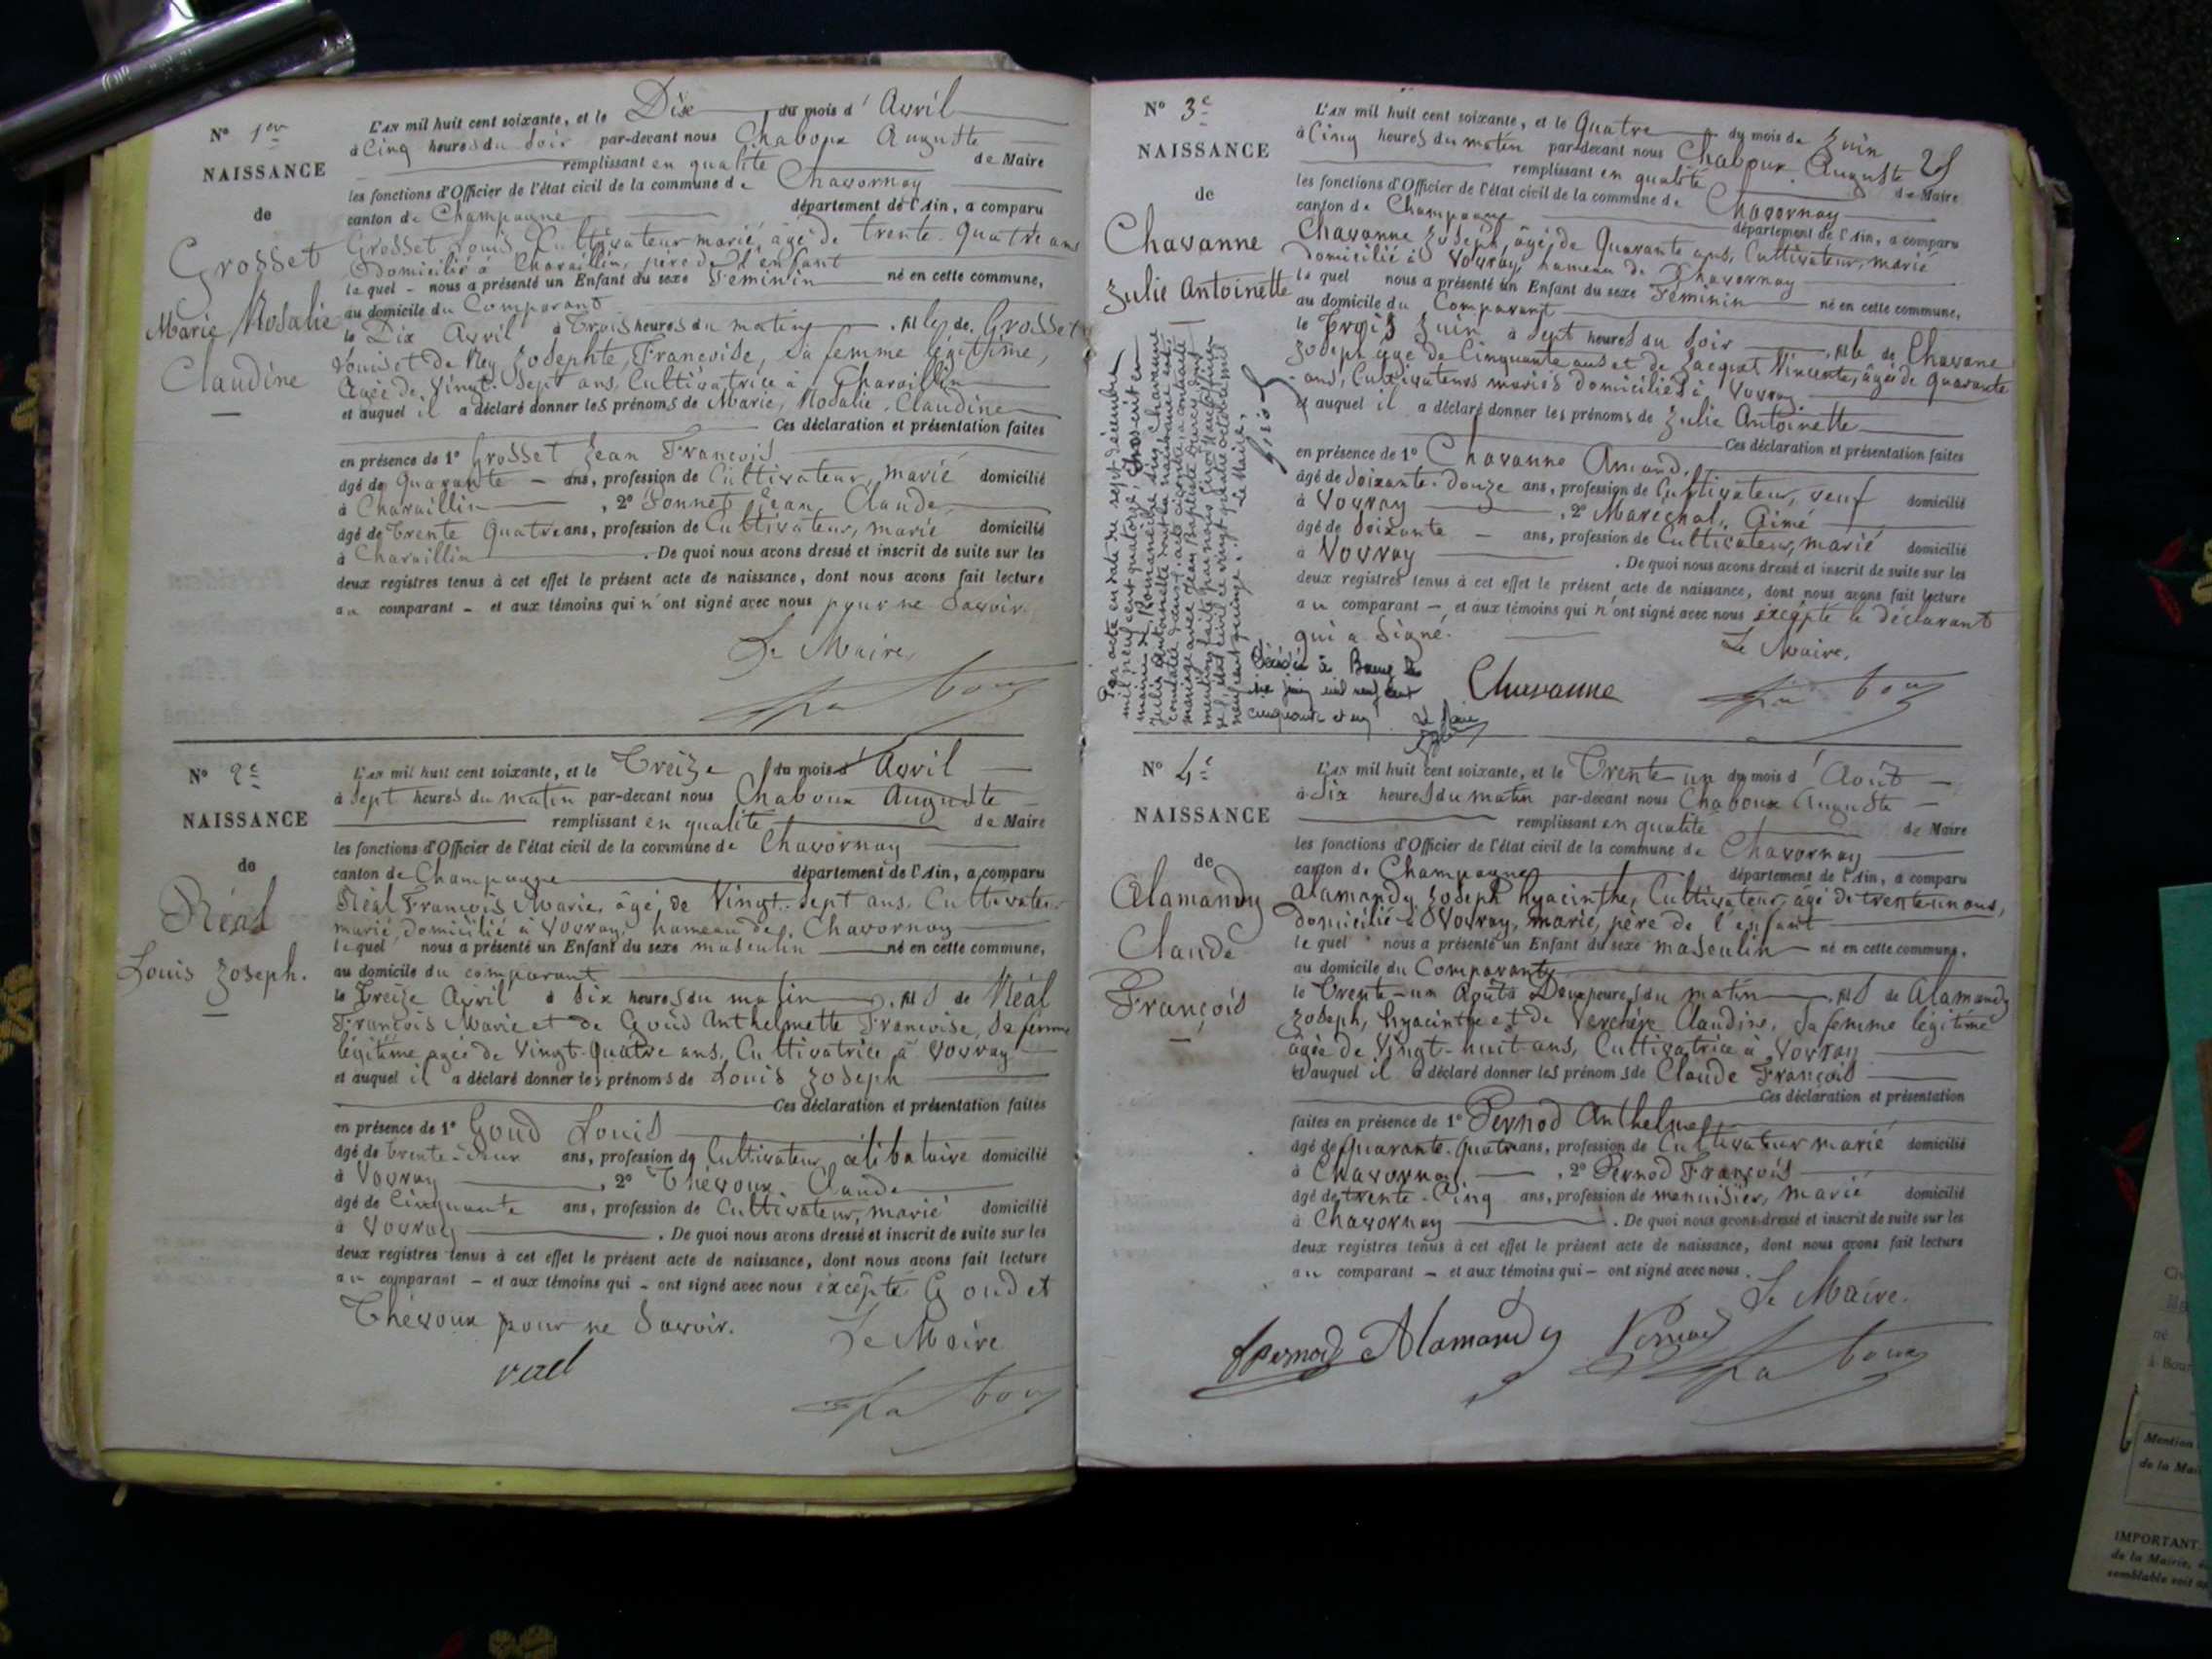 N° 1er
NAISSANCE
de
Grosset
Marie Rosalie
Claudine
L'AN mil huit cent soixante, et le Dix du mois d'Avril
à Cinq heures du soir par-devant nous Chaboux Auguste
remplissant en qualité de Maire
les fonctions d'Officier de l'état civil de la commune de Chavornay
canton de Champagne département de l'Ain, a comparu
Grosset Louis, Cultivateur marié, âgé de trente-quatre ans
domicilié à Charaillin, père de l'enfant
lequel - nous a présenté un Enfant du sexe Féminin né en cette commune,
au domicile du Comparant
le Dix Avril à Trois heures du matin, fille de Grosset
Louis et de Rey Josephte, Françoise, sa femme légitime,
âgée de Vingt-Sept ans, Cultivatrice à Charaillin
et auquel il a déclaré donner les prénoms de Marie, Rosalie, Claudine
Ces déclaration et présentation faites
en présence de 1° Grosset Jean François
âgé de Quarante - ans, profession de Cultivateur, marié domicilié
à Charaillin, 2° Jean Claude
âgé de Trente Quatre ans, profession de Cultivateur, marié domicilié
à Charaillin. De quoi nous avons dressé et inscrit de suite sur les
deux registres tenus à cet effet le présent acte de naissance, dont nous avons fait lecture
au comparant - et aux témoins qui n'ont signé avec nous pour ne savoir.
Le Maire,
N° 2e
NAISSANCE
de
Réal
Louis Joseph.
L'AN mil huit cent soixante, et le Treize du mois d'Avril
à sept heures du matin par-devant nous Chaboux Auguste
remplissant en qualité de Maire
les fonctions d'Officier de l'état civil de la commune de Chavornay
canton de Champagne département de l'Ain, a comparu
Réal François Marie, âgé de Vingt-sept ans, Cultivateur
marié, domicilié à Vovray, hameau de Chavornay
lequel nous a présenté un Enfant du sexe masculin né en cette commune,
au domicile du comparant
le Treize Avril à six heures du matin, fils de Réal
François Marie et de Goud Anthelmette Françoise, sa femme
légitime agée de Vingt-Quatre ans, Cultivatrice à Vovray
et auquel il a déclaré donner les prénoms de Louis Joseph
Ces déclaration et présentation faites
en présence de 1° Goud Louis
âgé de trente-deux ans, profession de Cultivateur, célibataire domicilié
à Vovray, 2° Thévoux Claude
âgé de Cinquante ans, profession de Cultivateur, marié domicilié
à Vovray. De quoi nous avons dressé et inscrit de suite sur les
deux registres tenus à cet effet le présent acte de naissance, dont nous avons fait lecture
au comparant - et aux témoins qui - ont signé avec nous excepté Goud et
Thévoux pour ne savoir.
Le Maire
réal
N° 3e
NAISSANCE
de
Chavanne
Julie Antoinette
28
L'AN mil huit cent soixante, et le Quatre du mois de Juin
à Cinq heures du matin par-devant nous Chaboux Auguste
remplissant en qualité de Maire
les fonctions d'Officier de l'état civil de la commune de Chavornay
canton de Champagne département de l'Ain, a comparu
Chavanne Joseph, âgé de Quarante ans, Cultivateur, marié
domicilié à Vovray, hameau de Chavornay
lequel nous a présenté un Enfant du sexe Féminin né en cette commune,
au domicile du Comparant
le Trois Juin à sept heures du soir, fille de Chavane
Joseph âgé de Cinquante ans et de Jacquet Vincente, âgée de quarante
ans, Cultivateurs mariés domiciliés à Vovray
et auquel il a déclaré donner les prénoms de Julie Antoinette
Ces déclaration et présentation faites
en présence de 1° Chavanne Amand,
âgé de soixante-douze ans, profession de Cultivateur, veuf domicilié
à Vovray, 2° Maréchal, Aimé
âgé de soixante - ans, profession de Cultivateur, marié domicilié
à Vovray. De quoi nous avons dressé et inscrit de suite sur les
deux registres tenus à cet effet le présent acte de naissance, dont nous avons fait lecture
au comparant -, et aux témoins qui n'ont signé avec nous excepté le déclarant
qui a signé.
Le Maire,
Chavanne
Par acte en date du sept décembre
mil neuf cent quatorze,
Julie Antoinette dont la naissance est
mariage avec Jean Baptiste
Le Maire,
Décédée à le
six juin mil neuf cent
cinquante et un
Le Maire
N° 4e
NAISSANCE
de
Alamandy
Claude
François
L'AN mil huit cent soixante, et le Trente un du mois d'Août
à Six heures du matin par-devant nous Chaboux Auguste
remplissant en qualité de Maire
les fonctions d'Officier de l'état civil de la commune de Chavornay
canton de Champagne département de l'Ain, a comparu
Alamandy Joseph hyacinthe, Cultivateur, âgé de trente-un ans,
domicilié à Vovray, marié, père de l'enfant
lequel nous a présenté un Enfant du sexe masculin né en cette commune,
au domicile du Comparant
le Trente-un Août à Deux heures du matin, fils de Alamandy
Joseph, hyacinthe et de Verchère Claudine, sa femme légitime
âgée de Vingt-huit ans, Cultivatrice à Vovray
et auquel il a déclaré donner les prénoms de Claude François
Ces déclaration et présentation
faites en présence de 1° Pernod Anthelme
âgé de Quarante-quatre ans, profession de Cultivateur marié domicilié
à Chavornay, 2° Pernod François
âgé de trente-Cinq ans, profession de menuisier, marié domicilié
à Chavornay. De quoi nous avons dressé et inscrit de suite sur les
deux registres tenus à cet effet le présent acte de naissance, dont nous avons fait lecture
au comparant - et aux témoins qui - ont signé avec nous.
Le Maire.
Pernod Alamandy Pernod
Mention
de la Mai
IMPORTANT
de la Mairie,
semblable soit